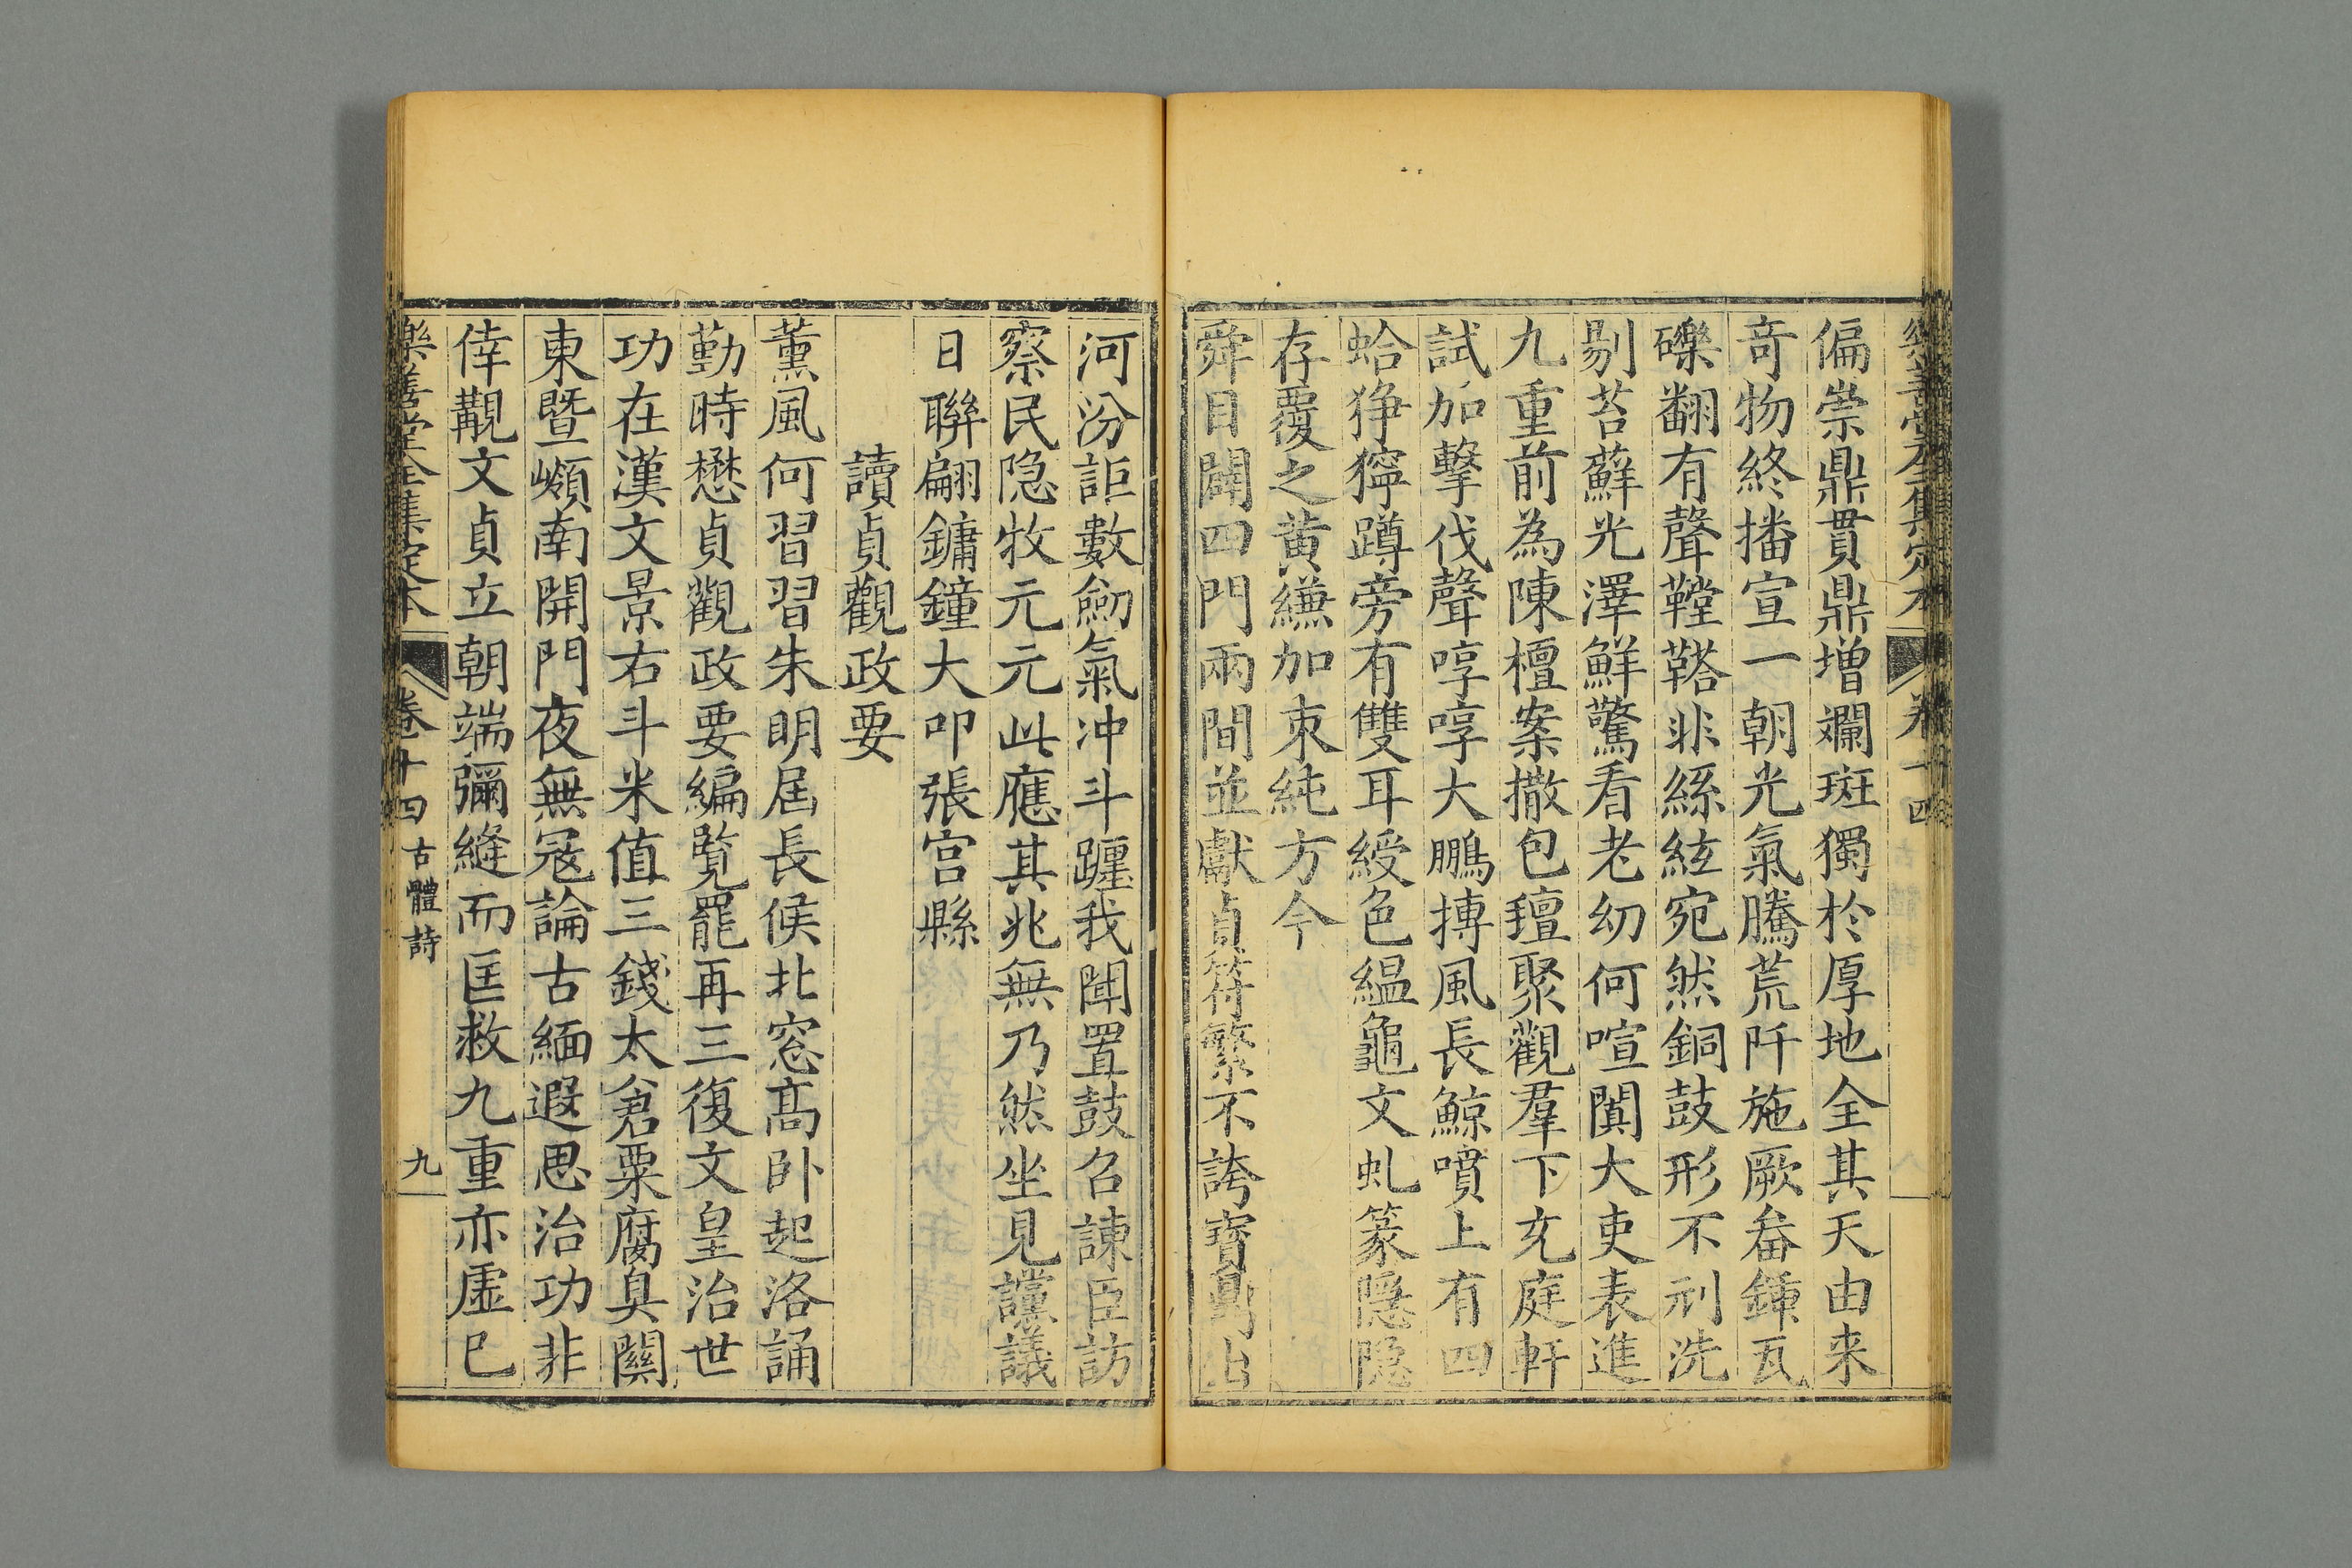 樂善堂全集定本 卷十四
偏崇鼎貫鼎增斕斑獨於厚地全其天由来
竒物終播宣一朝光氣騰荒阡施厥畚鍾瓦
礫翻有聲鞺鞳非絲絃宛然銅鼓形不刓洗
剔苔蘚光澤鮮驚看老幼何喧闐大吏表進
九重前為陳檀案撒包氊聚觀羣下充庭軒
試加擊伐聲哼哼大鵬摶風長鯨噴上有四
蛤猙獰蹲旁有雙耳綬色緼龜文虬篆隱隱
存覆之黄縑加束純方今
舜目闢四門兩間並獻貞符繁不誇寳鼎出
河汾詎數劒氣冲斗躔我聞置鼓召諫臣訪
察民隐牧元元此應其兆無乃然坐見讜議
日聨翩鏞鐘大叩張宫縣
讀貞觀政要
薫風何習習朱明届長候北窓髙卧起洛誦
勤時懋貞觀政要編覧罷再三復文皇治世
功在漢文景右斗米值三錢太倉粟腐臭關
東暨嶺南開門夜無冦論古緬遐思治功非
倖覯文貞立朝端彌縫而匡救九重亦虚已
樂善堂全集定本 卷十四 古體詩 九